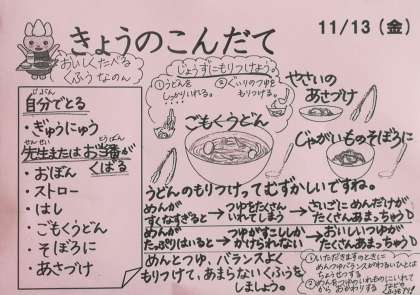 きょうのこんだて
11/13(金)
おいしくたべる
くふうなのん
じょうずにもりつけよう
①うどんを
しっかりいれる。
②ぐいりのつゆを
もりつける。
やさいの
あさづけ
ごもくうどん
じゃがいものそぼろに
自分でとる
・ぎゅうにゅう
先生またはお当番が
くばる
・おぼん
・ストロー
・はし
・ごもくうどん
・そぼろに
・あさづけ
うどんのもりつけってむずかしいですね。
めんが
すくなすぎると→つゆをたくさん
いれてしまう→さいごにめんだけが
たくさんあまっちゃう
めんが
たっぷりはいると→つゆがすこししか
かけられない→おいしいつゆが
たくさんあまっちゃう
めんとつゆ、バランスよく
もりつけて、あまらないくふうを
しましょう。
①いただきますのときに
めんつゆバランスがわるいひとは
ちょうせつする
②めんをつゆのいれものにいれて
から、おかわりする